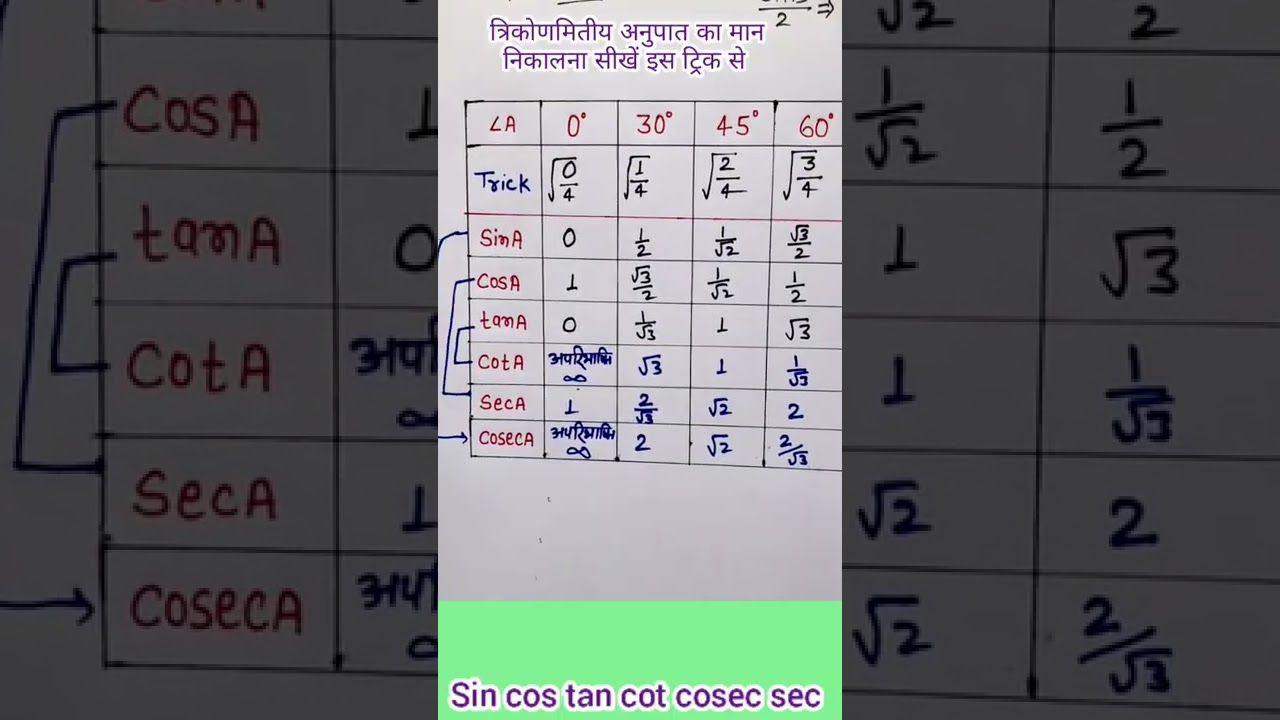 त्रिकोणमितीय अनुपात का मान
निकालना सीखें इस ट्रिक से
∠A 0° 30° 45° 60°
Trick √0/4 √1/4 √2/4 √3/4
SinA 0 1/2 1/√2 √3/2
CosA 1 √3/2 1/√2 1/2
tanA 0 1/√3 1 √3
CotA अपरिभाषित ∞ √3 1 1/√3
SecA 1 2/√3 √2 2
CosecA अपरिभाषित ∞ 2 √2 2/√3
Sin cos tan cot cosec sec